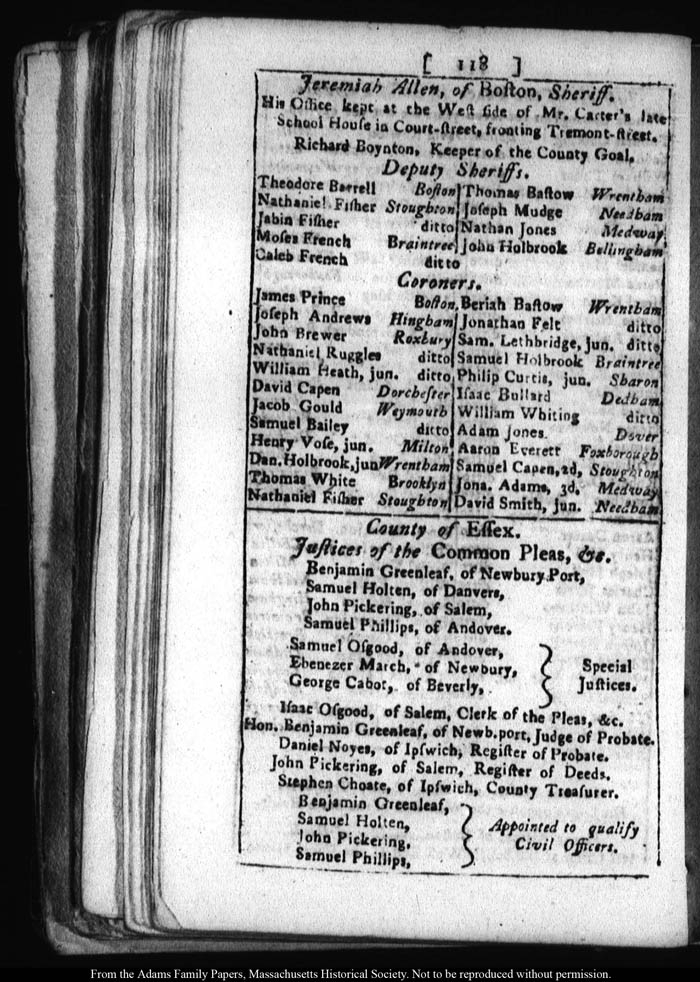 [ 118 ]
Jeremiah Allen, of Boſton, Sheriff.
His Office kept at the Weſt ſide of Mr. Carter's late
School Houſe in Court-ſtreet, fronting Tremont-ſtreet.
Richard Boynton, Keeper of the County Goal.
Deputy Sheriffs.
Theodore Barrell Boſton Thomas Baſtow Wrentham
Nathaniel Fiſher Stoughton Joſeph Mudge Needham
Jabin Fiſher ditto Nathan Jones Medway
Moſes French Braintree John Holbrook Bellingham
Caleb French ditto
Coroners.
James Prince Boſton, Beriah Baſtow Wrentham
Joſeph Andrews Hingham Jonathan Felt ditto
John Brewer Roxbury Sam. Lethbridge, jun. ditto
Nathaniel Ruggles ditto Samuel Holbrook Braintree
William Heath, jun. ditto Philip Curtis, jun. Sharon
David Capen Dorcheſter Iſaac Bullard Dedham
Jacob Gould Weymouth William Whiting ditto
Samuel Bailey ditto Adam Jones Dover
Henry Voſe, jun. Milton Aaron Everett Foxborough
Dan. Holbrook, jun Wrentham Samuel Capen, 2d, Stoughton
Thomas White Brooklyn Jona. Adams, 3d, Medway
Nathaniel Fiſher Stoughton David Smith, jun. Needham
County of Eſſex.
Juſtices of the Common Pleas, &c.
Benjamin Greenleaf, of Newbury Port,
Samuel Holten, of Danvers,
John Pickering, of Salem,
Samuel Phillips, of Andover.
Samuel Oſgood, of Andover,
Ebenezer March, of Newbury,
George Cabot, of Beverly,
Special
Juſtices.
Iſaac Oſgood, of Salem, Clerk of the Pleas, &c.
Hon. Benjamin Greenleaf, of Newb.port, Judge of Probate.
Daniel Noyes, of Ipſwich, Regiſter of Probate.
John Pickering, of Salem, Regiſter of Deeds.
Stephen Choate, of Ipſwich, County Treaſurer.
Benjamin Greenleaf,
Samuel Holten,
John Pickering,
Samuel Phillips,
Appointed to qualify
Civil Officers.
From the Adams Family Papers, Massachusetts Historical Society. Not to be reproduced without permission.